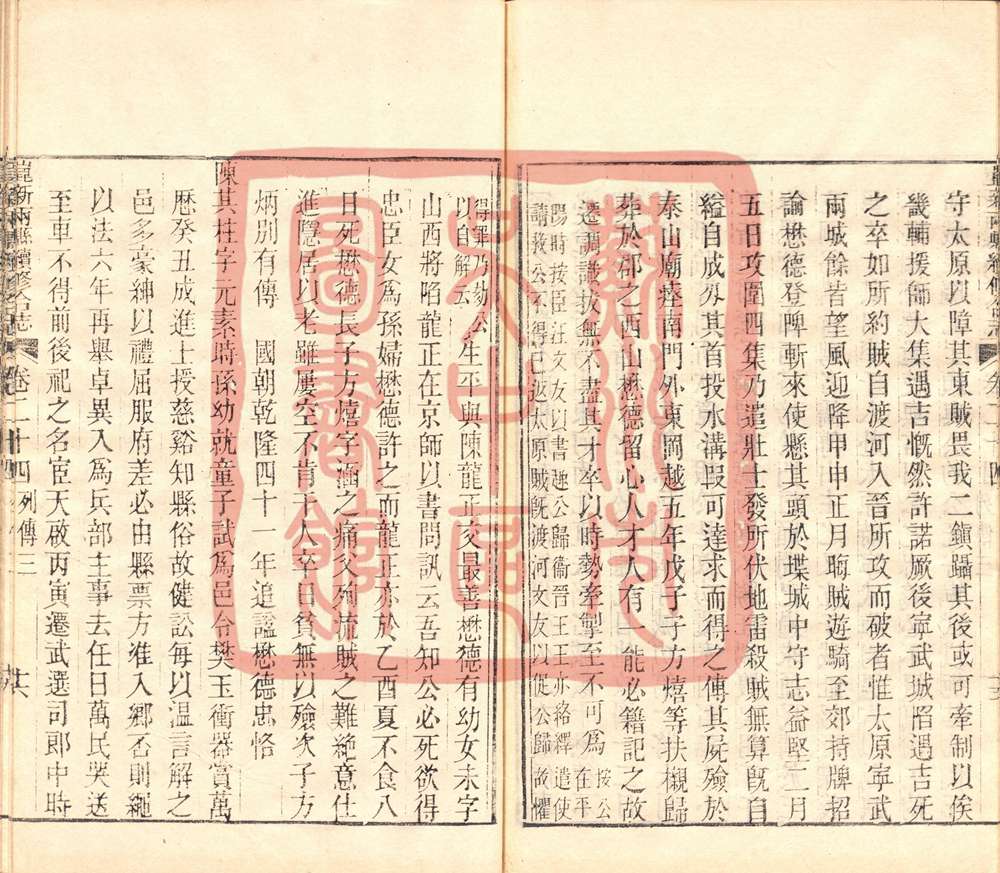 守太原以障其東賊畏我二鎭躡其後或可牽制以俟
畿輔援師大集遇吉慨然許諾厥後寜武城陷遇吉死
之卒如所約賊自渡河入晉所攻而破者惟太原寜武
兩城餘皆望風迎降甲申正月晦賊遊騎至郊持牌招
論懋德登陴斬來使懸其頭於堞城中守志益堅二月
五日攻圍四集乃遣壯士發所伏地雷殺賊無算旣自
縊自成歹其首投水溝叚可達求而得之傅其屍殮於
泰山廟瘞南門外東岡越五年戊子子方熺等扶櫬歸
葬於郡之西山懋德留心人才人有一能必籍記之故
遷調識拔無不盡其才卒以時勢牽掣至不可爲
按公在平
陽時按臣汪文友以書趣公歸衞晉王王亦絡繹遣使
請救公不得已返太原賊旣渡河文友以促公歸故懼
得罪乃劾公
以自解云
生平與陳龍正交最善懋德有幼女未字
山西將陷龍正在京師以書問訊云吾知公必死欲得
忠臣女爲孫婦懋德許之而龍正亦於乙酉夏不食八
日死懋德長子方熺字涵之痛父殉流賊之難絶意仕
進隱居以老雖屢空不肯干人卒日貧無以殮次子方
炳別有傳 國朝乾隆四十一年追諡懋德忠恪
陳其柱字元素時孫幼就童子試爲邑令樊玉衝器賞萬
歴癸丑成進士授慈谿知縣俗故健訟每以温言解之
邑多豪紳以禮屈服府差必由縣票方准入鄉否則繩
以法六年再舉卓異入爲兵部主事去任日萬民哭送
至車不得前後祀之名宦天啟丙寅遷武選司郎中時
崑新兩縣續修合志 卷二十四 列傳三 廿六
蘇州市吳中區圖書館